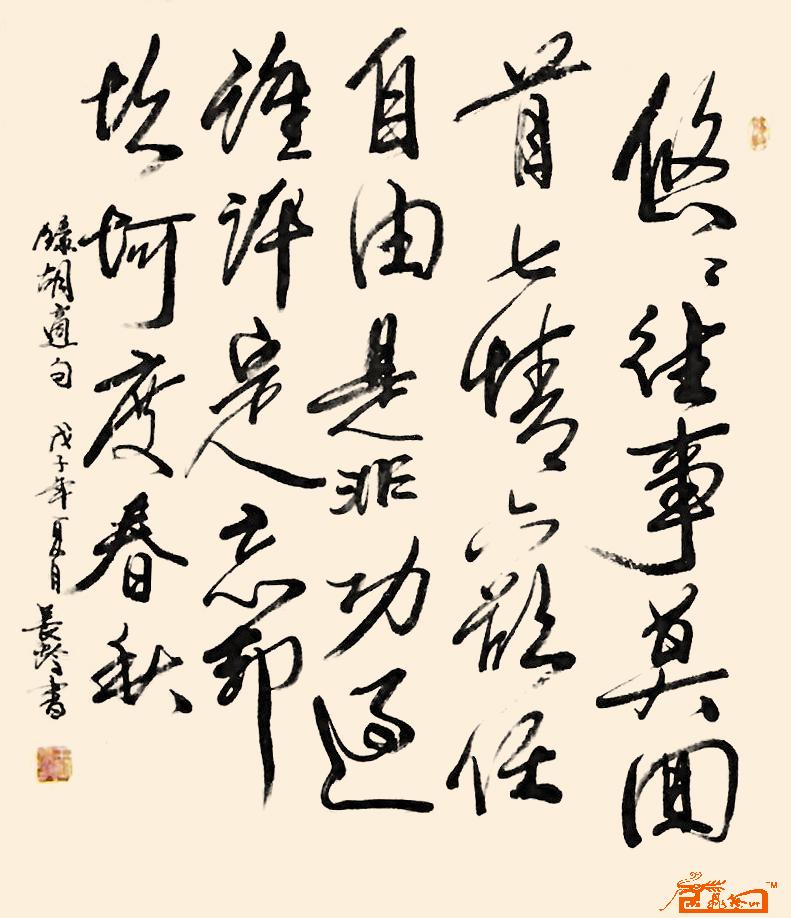 悠〻往事莫回
首七情六欲任
自由是非功過
誰評定忘却
坎坷度春秋
錄胡適句 戊子年夏月 長齡書